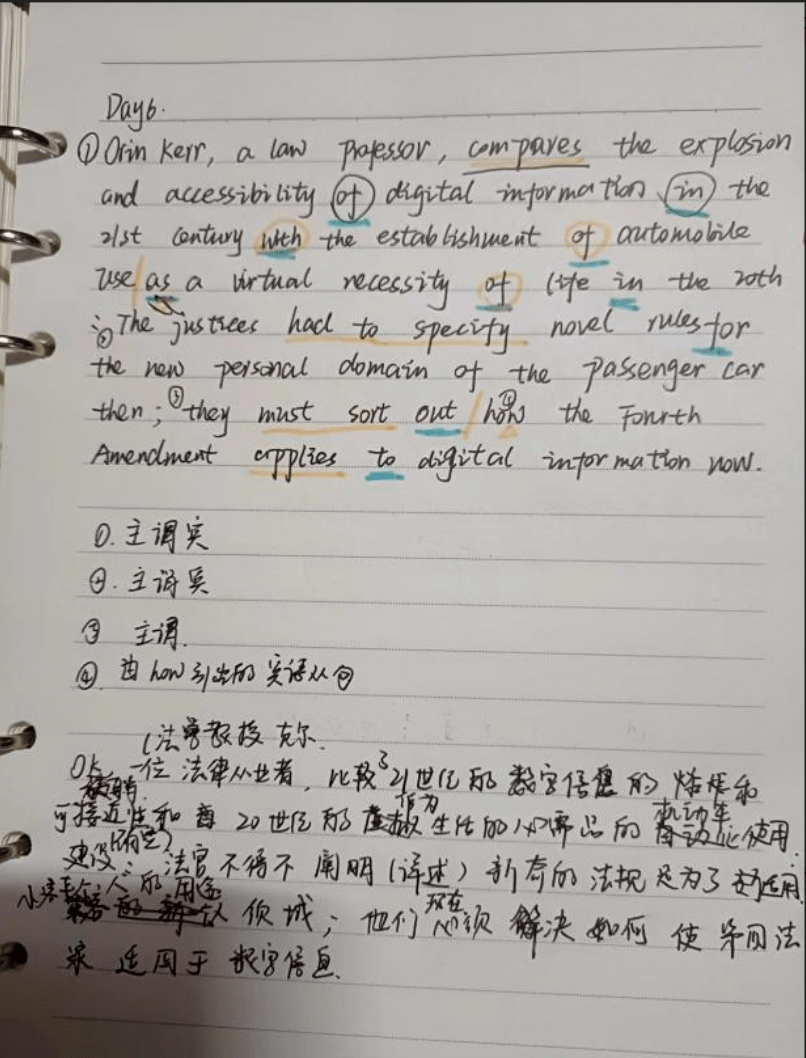 Day6.
①Orin Kerr, a law professor, compares the explosion
and accessibility of digital information in the
21st century with the establishment of automobile
use as a virtual necessity of life in the 20th
:②The justices had to specify novel rules for
the new personal domain of the passenger car
then; ③they must sort out ④how the Fourth
Amendment applies to digital information now.
①. 主谓宾
②. 主谓宾
③ 主谓.
④ 由how引出的宾语从句
(法学教授 克尔.
一位 法律从业者, 比较了21世纪的 数字信息 的 爆炸和
可接近性和 20世纪的 作为 生活的必需品的 机动车 使用
建设: 法官 不得不 阐明(详述) 新奇的 法规 是为了 适用
领域; 他们 现在 必须 解决 如何 使 第四法
案 适用于 数字信息.